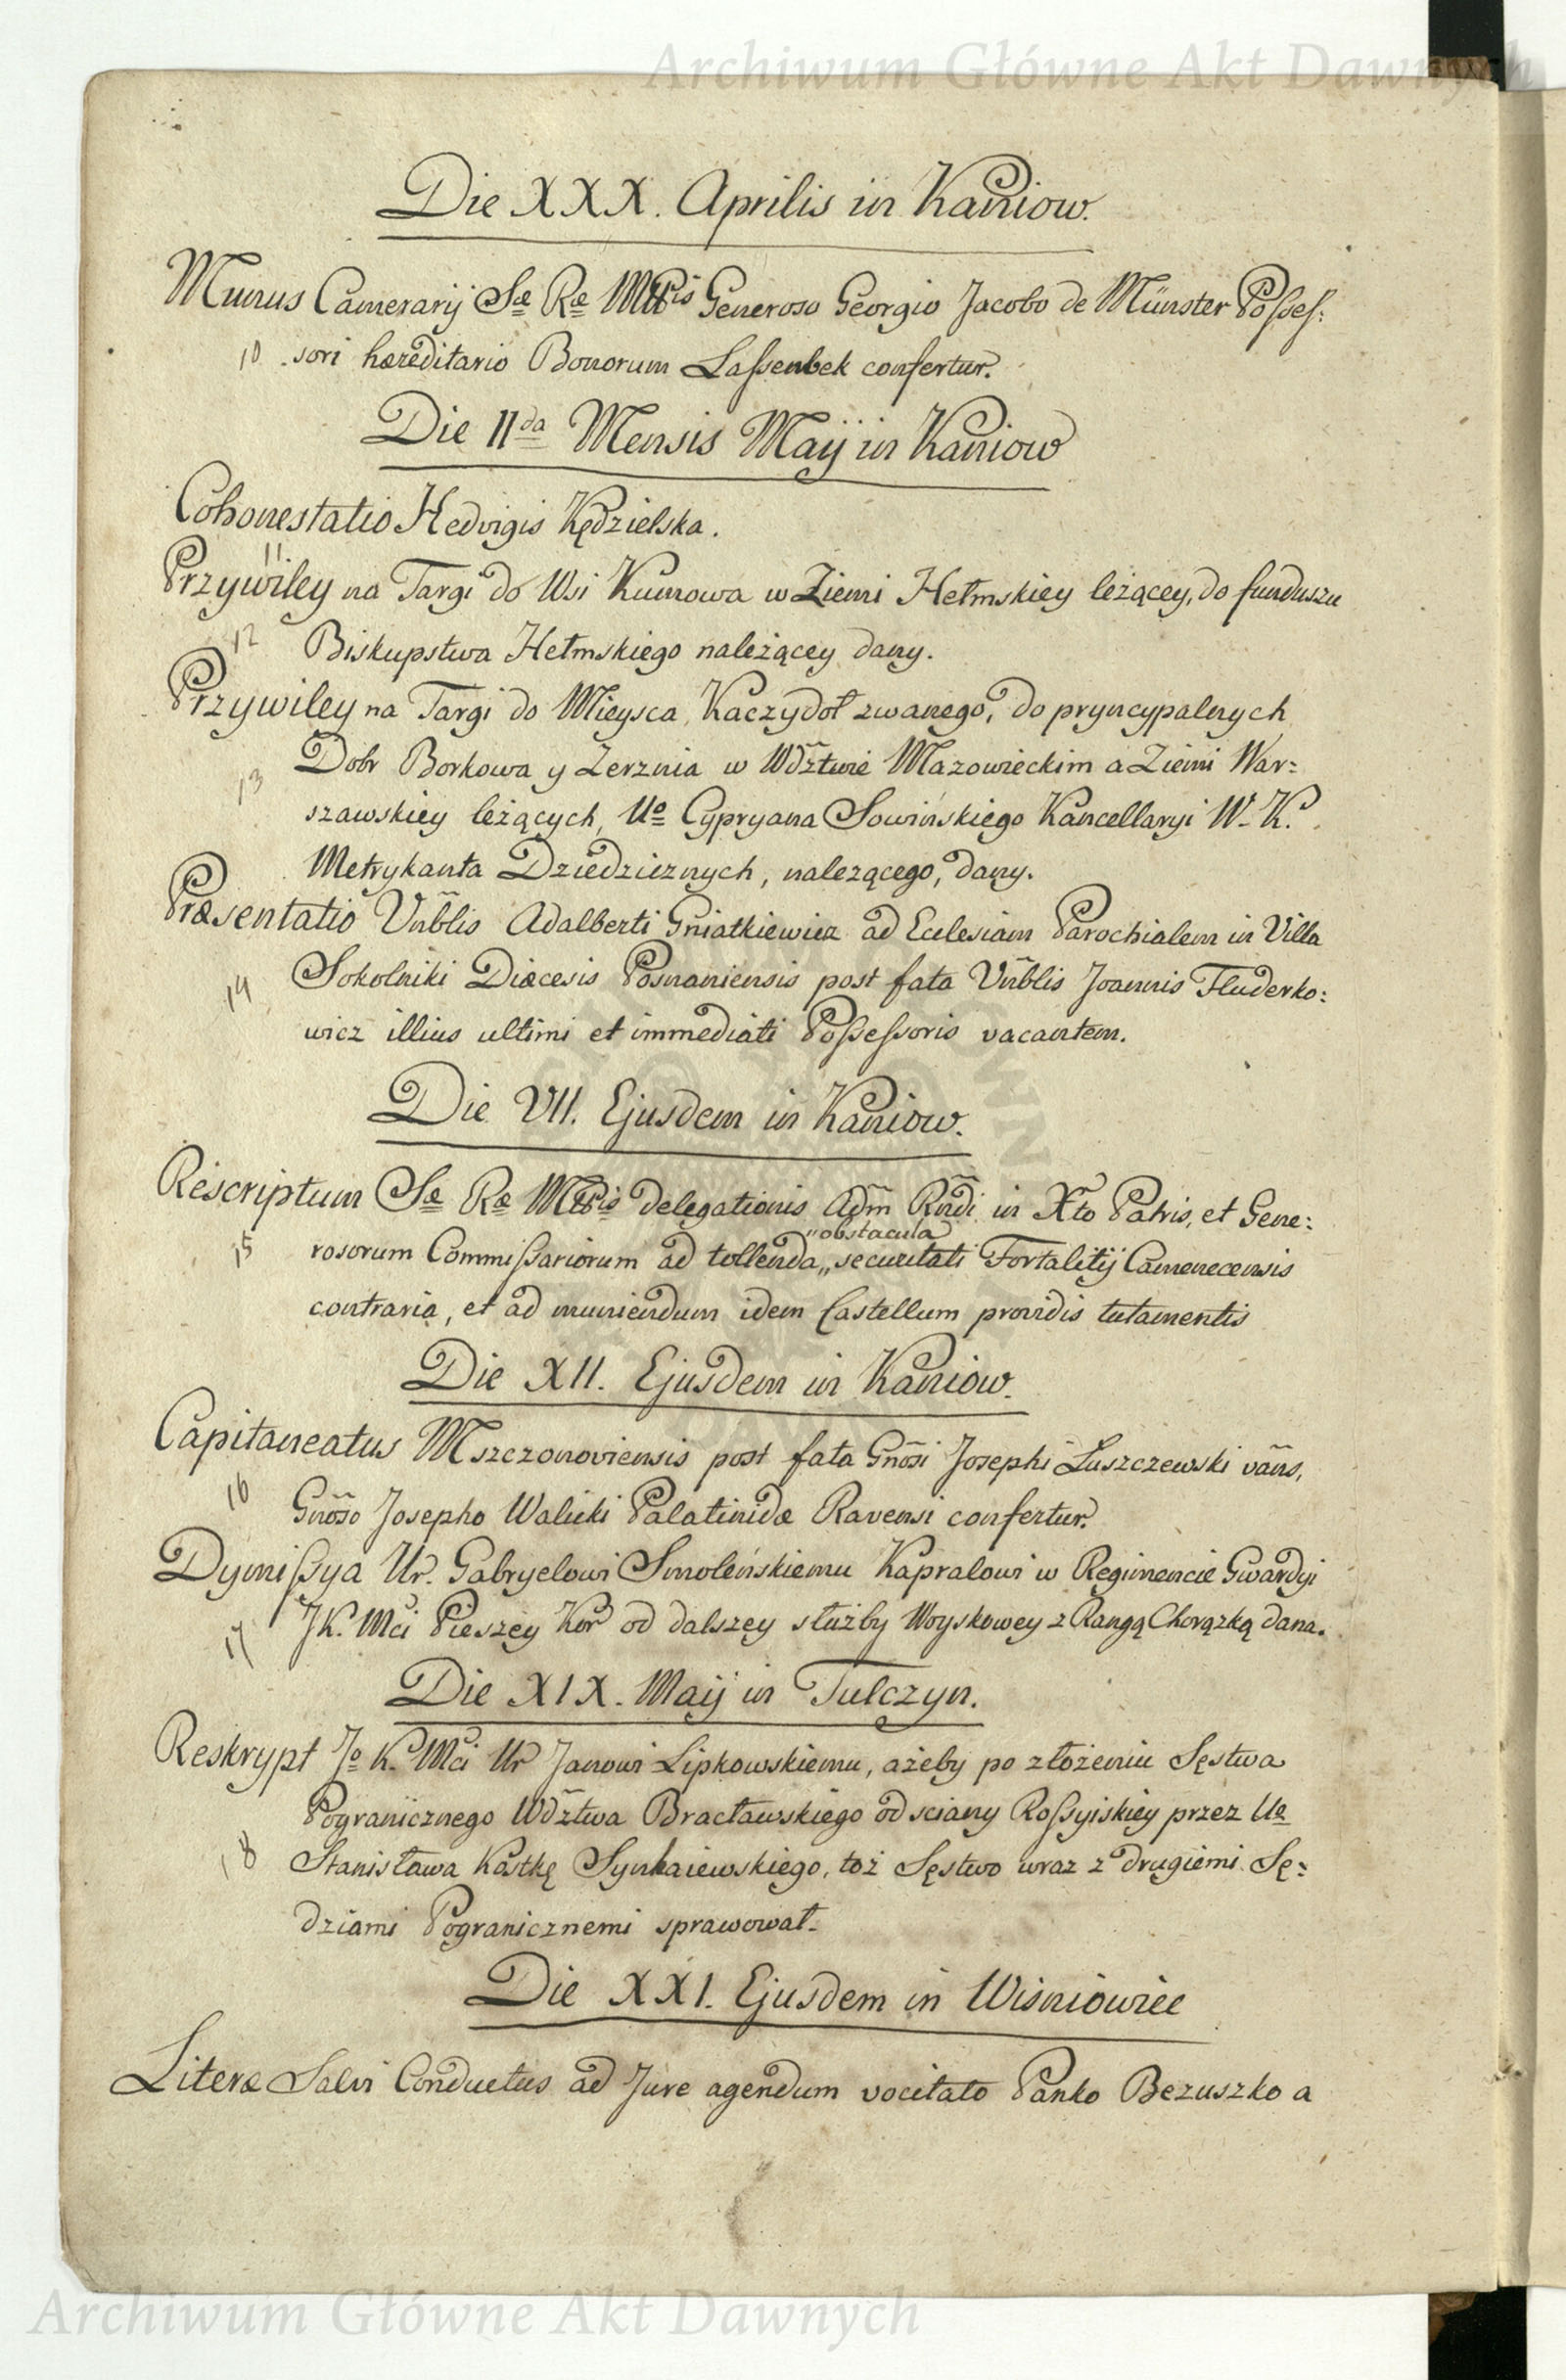 Archiwum Główne Akt Dawnych
Die XXX. Aprilis in Kaniow.
Munus Camerarij Sæ Ræ Mttis Generoso Georgio Jacobo de Münster Possef:
10 sori hæreditario Bonorum Lassenbek confertur.
Die IIda Mensis Maij in Kaniow
Cohonestatio Hedvigis Kędzielska.
11
Przywiley na Targi do Wsi Kumowa w Ziemi Hełmskiey leżącey, do funduszu
12 Biskupstwa Hełmskiego należącey dany.
Przywiley na Targi do Mieysca Kaczydoł zwanego, do pryncypalnych
13 Dobr Borkowa y Zerznia w Wdztwie Mazowieckim a Ziemi War:
szawskiey leżących, Uo Cypryana Sowińskiego Kancellaryi W. K.
Metrykanta Dziedzicznych, nalezącego, dany.
Præsentatio Vnblis Adalberti Gniatkiewicz ad Ecclesiam Parochialem in Villa
14 Sokolniki Diæcesis Posnaniensis post fata Vnblis Joannis Fluderko:
wicz illius ultimi et immediati Possessoris vacantem.
Die VII. Ejusdem in Kaniow.
Rescriptum Sæ Ræ Mttis delegationis Adm Rndi in Xto Patris, et Gene:
15 rosorum Commissariorum ad tollenda „obstacula„ securitati Fortalitij Camenecensis
contraria, et ad muniendum idem Castellum providis tutamentis
Die XII. Ejusdem in Kaniow.
Capitaneatus Mszczonoviensis post fata Gnosi Josephi Łuszczewski vans,
16 Gnoso Josepho Walicki Palatinidæ Ravensi confertur.
Dymissya Ur. Gabryelowi Smoleńskiemu Kapralowi w Regimencie Gwardyi
17 JK. Mci Pieszey Kor od dalszey służby Woyskowey z Rangą Chorązką dana.
Die XIX. Maij in Tulczyn.
Reskrypt Jo K. Mci Ur Janowi Lipkowskiemu, ażeby po złożeniu Sęstwa
Pogranicznego Wdztwa Bracławskiego od sciany Rossyiskiey przez Uo
18 Stanisława Kostkę Synhaiewskiego, toż Sęstwo wraz z drugiemi Sę:
dziami Pogranicznemi sprawował.
Die XXI. Ejusdem in Wisniowiec
Literæ Salvi Conductus ad Jure agendum vocitato Panko Bezuszko a
Archiwum Główne Akt Dawnych